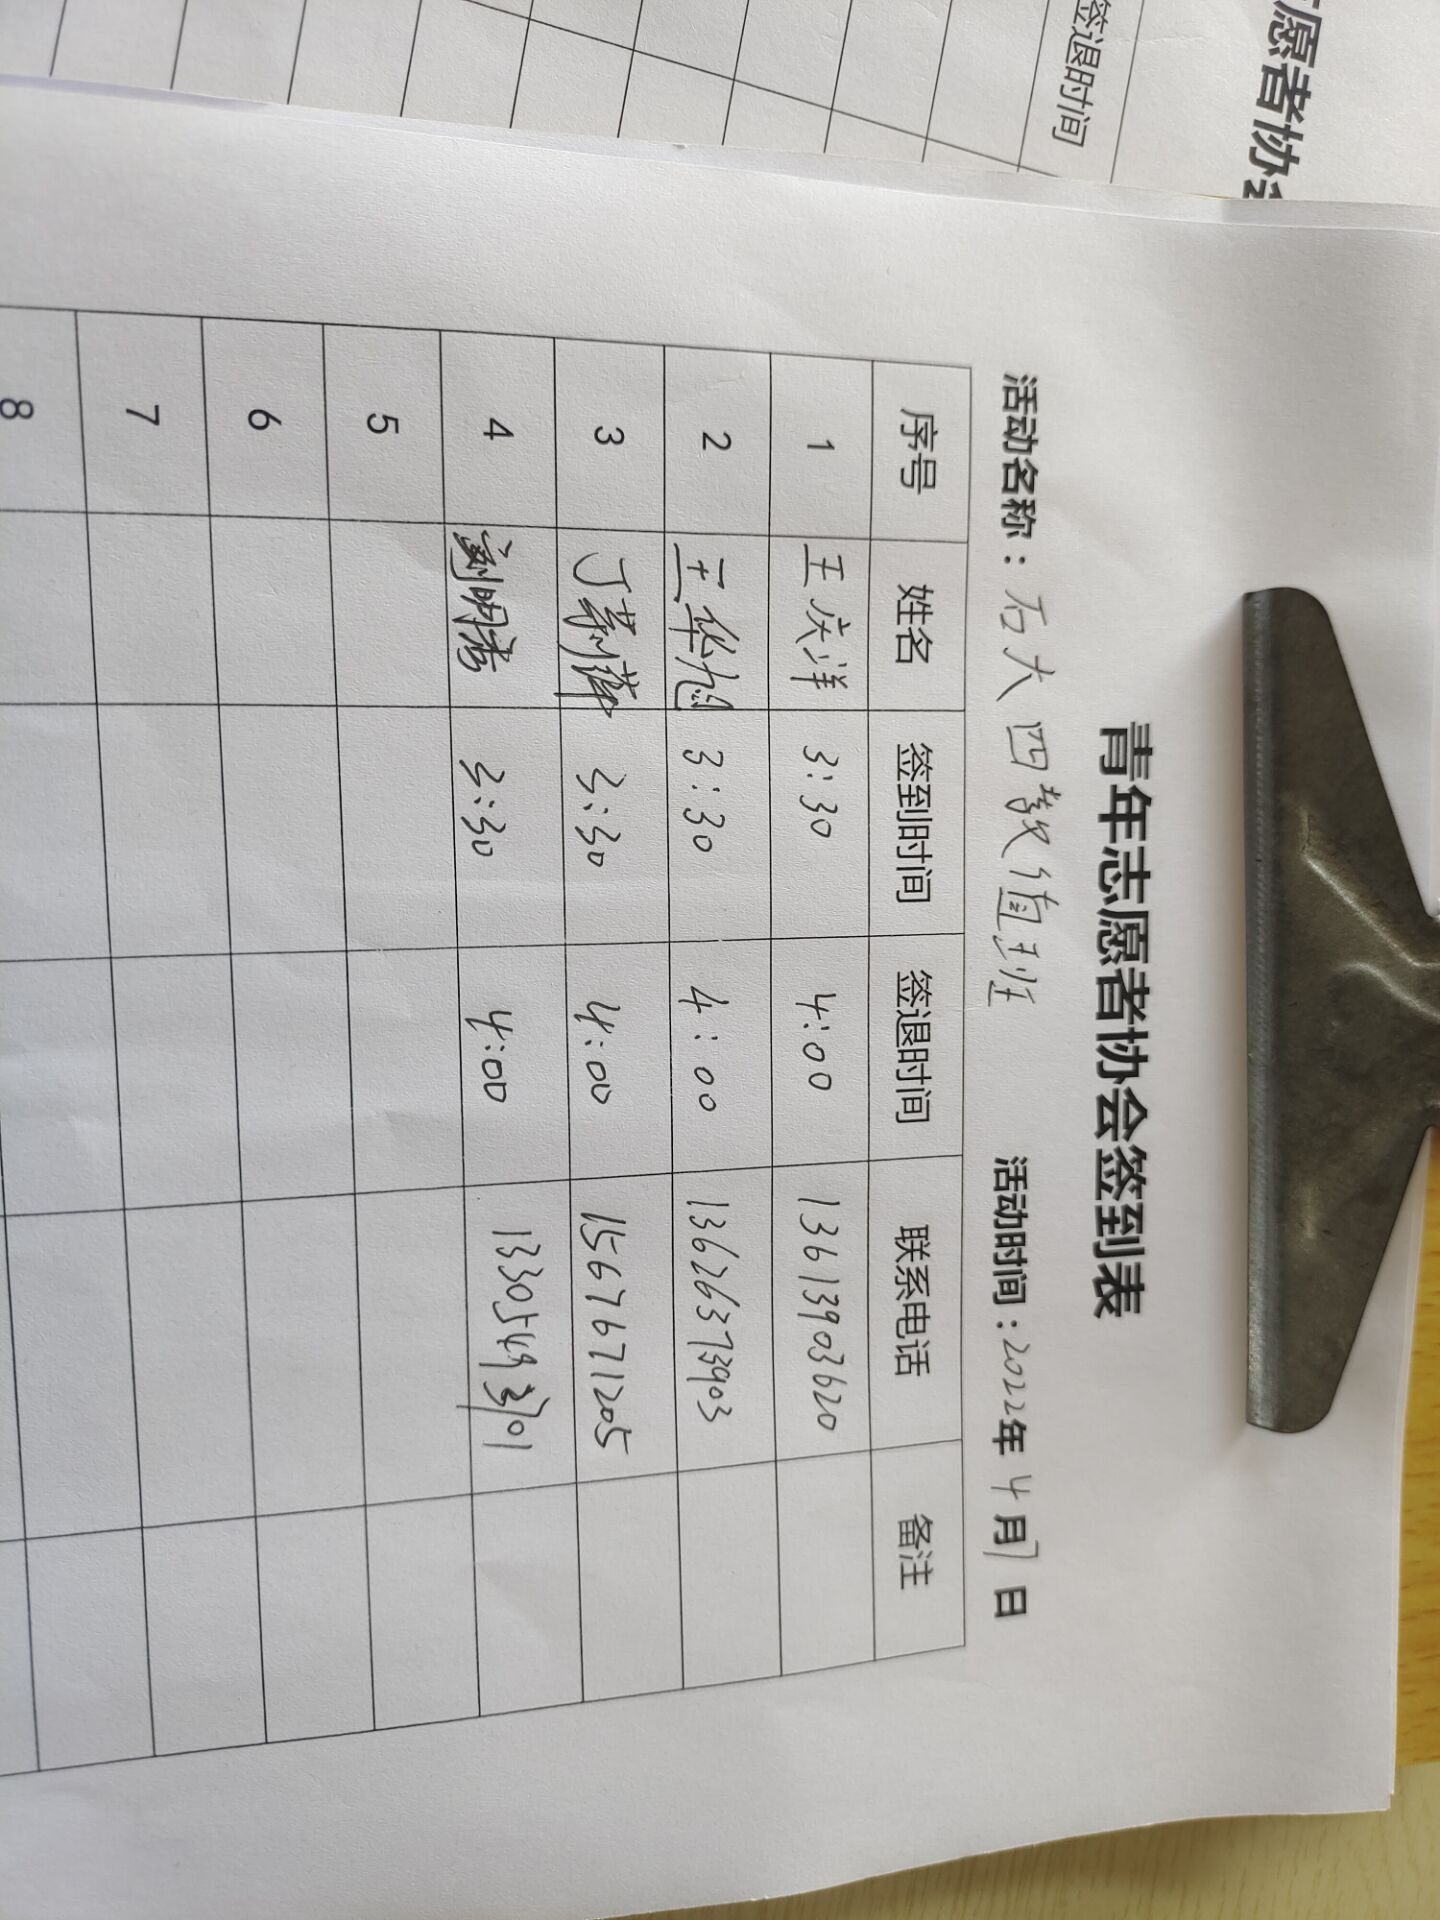 青年志愿者协会签到表
活动名称：石大四教值班 活动时间：2022年4月7日
序号 姓名 签到时间 签退时间 联系电话 备注
1 王庆洋 3:30 4:00 13613903620
2 王华旭 3:30 4:00 13626373903
3 3:30 4:00 15676771205
4 3:30 4:00
5
6
7
8
签退时间
愿者协